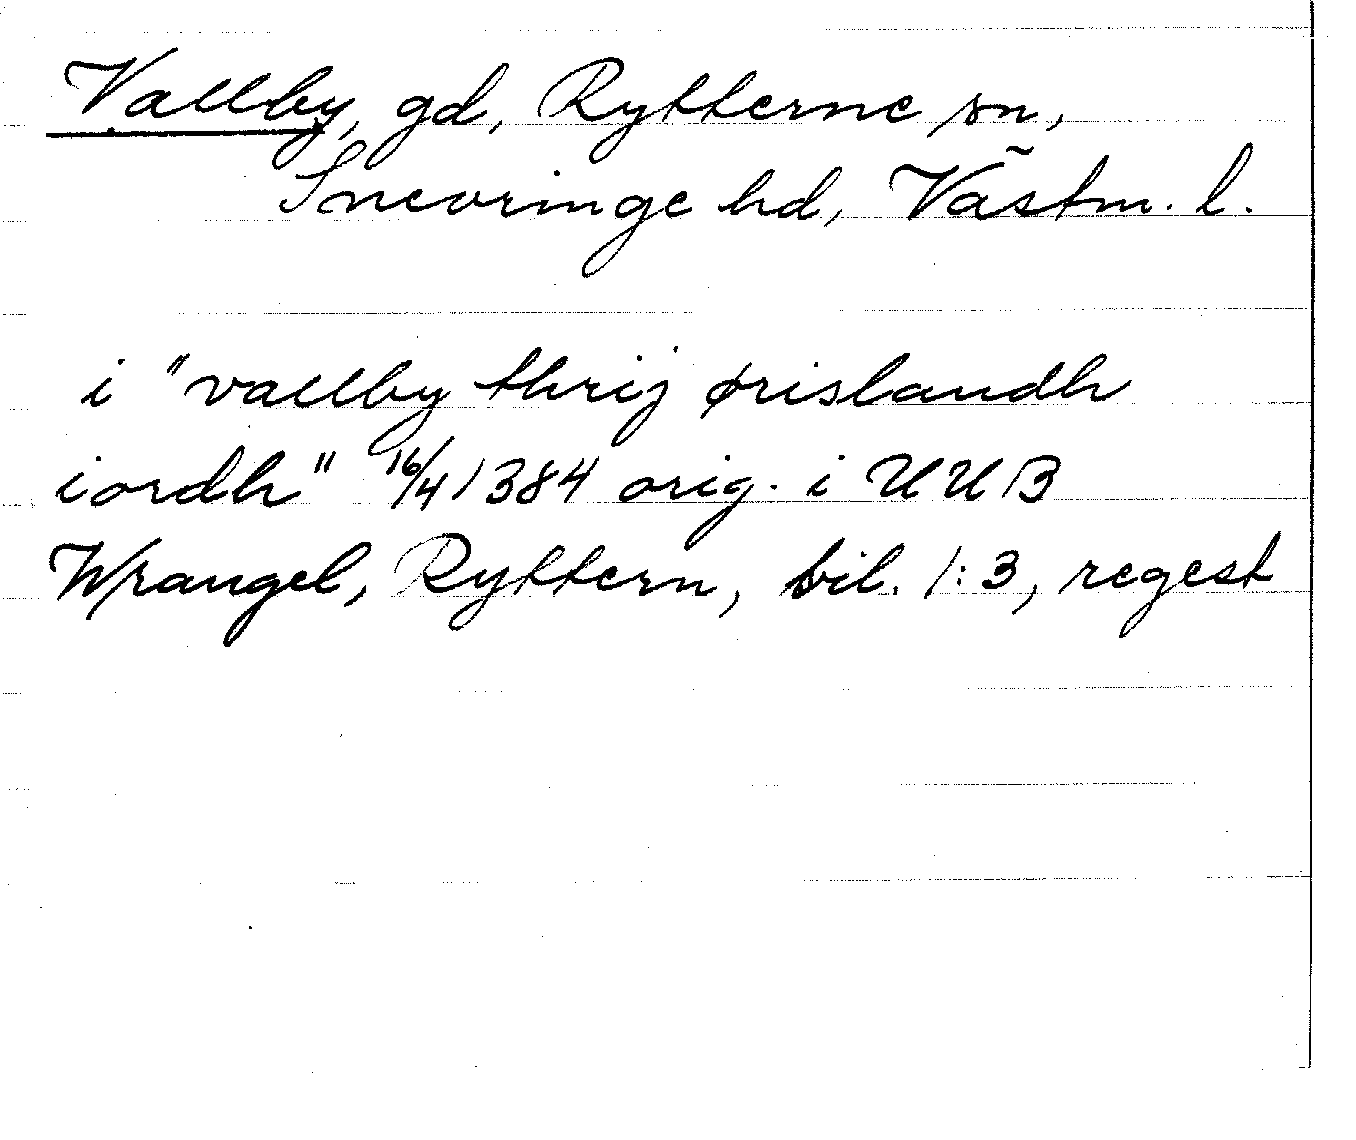 Vallby, gd, Rytterne sn,
Snevringe hd, Västm. l.
i "vallby thrij ørislandh
iordh" 16/4 1384 orig. i UUB
Wrangel, Ryttern, bil. 1:3, regest